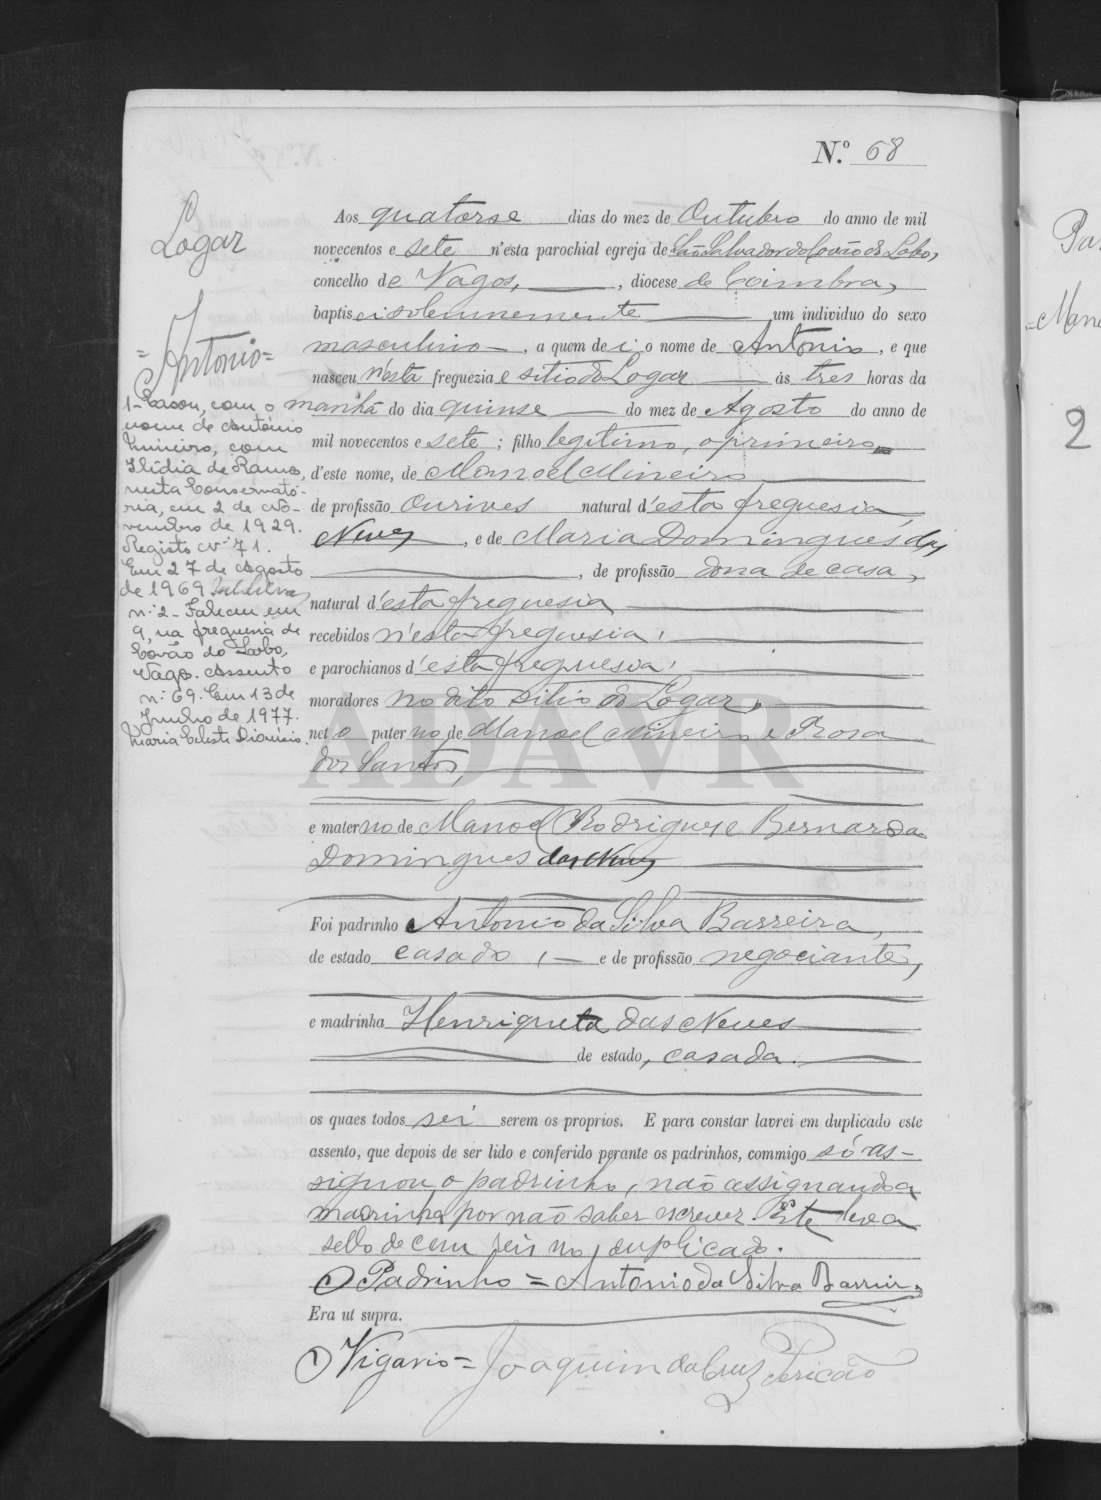 N.º 68
Logar
= Antonio =
1- Casou, com o
nome de António
Mineiro, com
Ilídia de Ramos,
nesta Conservató-
ria, em 2 de No-
vembro de 1929.
Registo nº 71.
Em 27 de Agosto
de 1969
n.º 2- Faleceu em
9, na freguesia de
Covão do Lobo,
Vagos. Assento
n.º 69. Em 13 de
Junho de 1977.
Maria Celeste Dionísio.
Aos quatorse dias do mez de Outubro do anno de mil
novecentos e sete n'esta parochial egreja de São Salvador do Covão do Lobo,
concelho de Vagos, , diocese de Coimbra,
baptisei solemnemente um individuo do sexo
masculino , a quem dei o nome de Antonio , e que
nasceu n'esta freguezia e sitio do Logar ás tres horas da
manhã do dia quinse do mez de Agosto do anno de
mil novecentos e sete ; filho legitimo, o primeiro
d'este nome, de Manoel Mineiro
de profissão ourives natural d'esta freguesia,
Neves , e de Maria Domingues das
, de profissão dona de casa,
natural d'esta freguesia
recebidos n'esta freguesia,
e parochianos d'esta freguesia,
moradores no dito sitio do Logar,
neto paterno de Manoel Mineiro e Rosa
dos Santos,
e materno de Manoel Rodrigues e Bernarda
Domingues das Neves
Foi padrinho Antonio da Silva Barreira,
de estado casado, e de profissão negociante,
e madrinha Henriqueta das Neves
de estado, casada.
os quaes todos sei serem os proprios. E para constar lavrei em duplicado este
assento, que depois de ser lido e conferido perante os padrinhos, commigo só as-
signou o padrinho, não assignando a
madrinha por não saber escrever. Este leva
sello de cem reis no duplicado.
O Padrinho = Antonio da Silva Barreira
Era ut supra.
O Vigario = Joaquim da Cruz Pericão
ADAVR
2